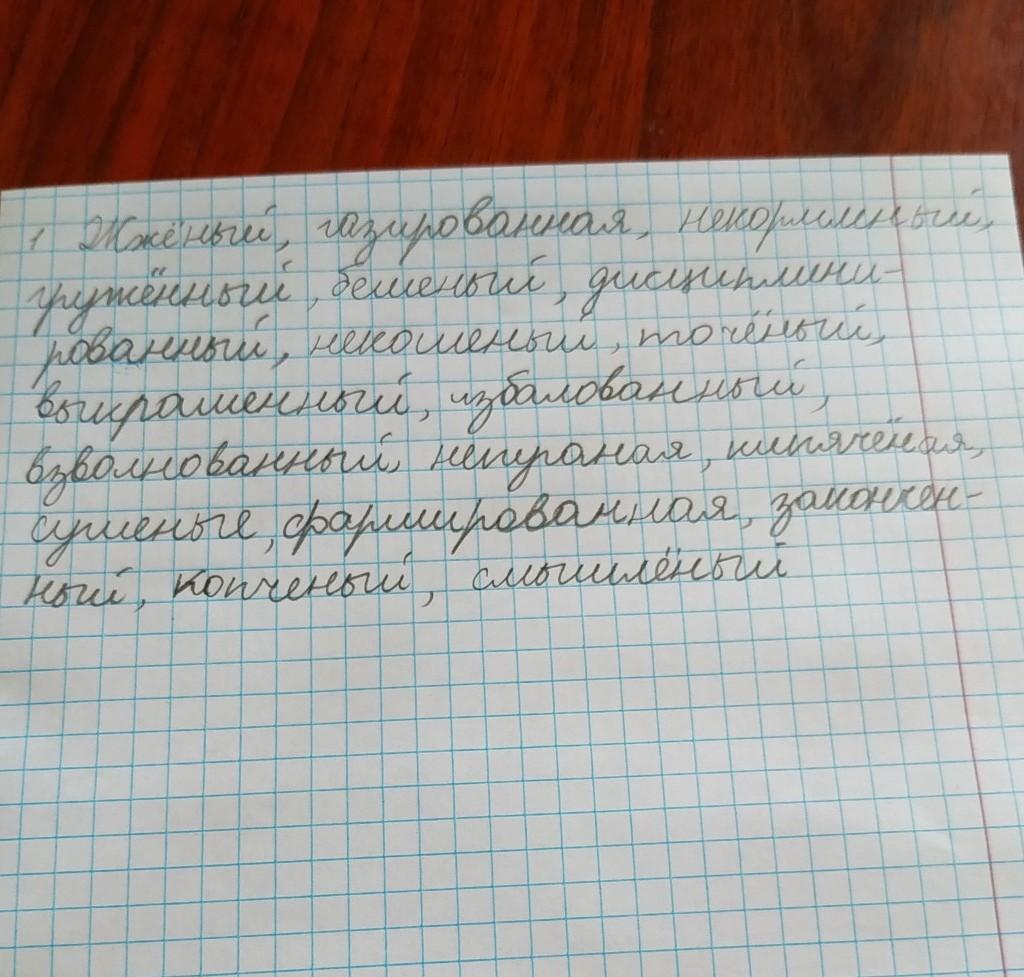 1 Жжёный, газированная, некормленый,
гружённый, бешеный, дисциплини-
рованный, некошеный, точёный,
выкрашенный, избалованный,
взволнованный, непуганая, кипячёная,
сушеные, фаршированная, закончен-
ный, копченый, смышлёный